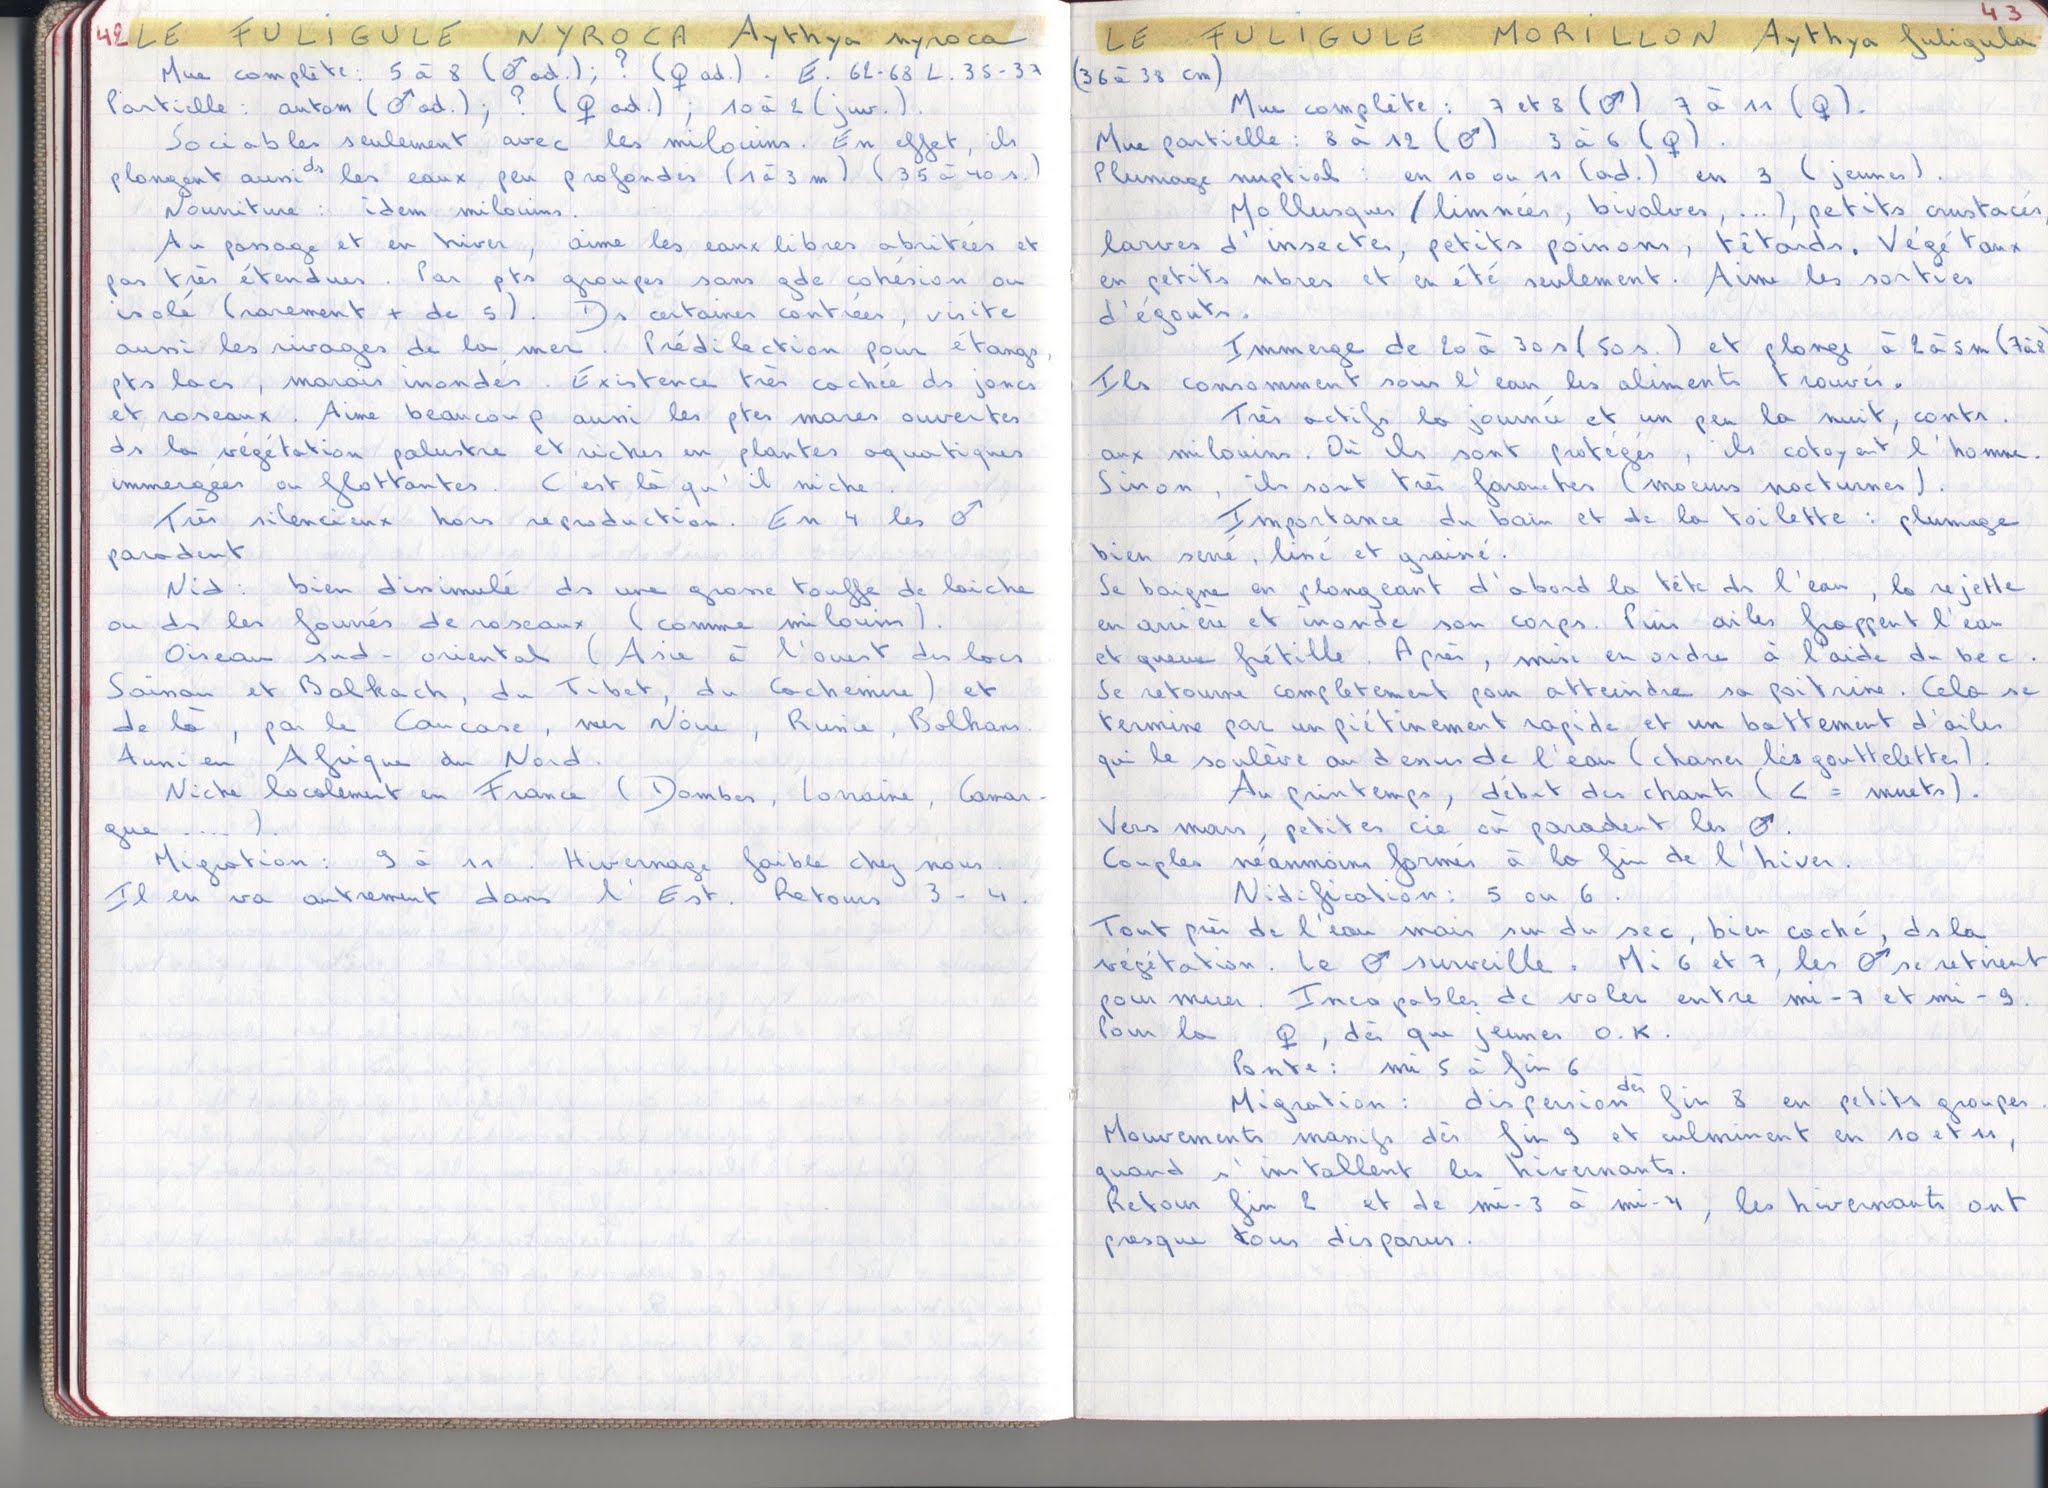 42 LE FULIGULE NYROCA Aythya nyroca
Mue complète : 5 à 8 (♂ ad.) ; ? (♀ ad.). E. 62-68 L. 35-37
Partielle : autom (♂ ad.) ; ? (♀ ad.) ; 10 à 2 (juv.).
Sociables seulement avec les milouins. En effet, ils
plongent aussi ds les eaux peu profondes (1 à 3 m) (35 à 40 s.)
Nourriture : idem milouins.
Au passage et en hiver, aime les eaux libres abritées et
pas très étendues. Par pts groupes sans gde cohésion ou
isolé (rarement + de 5). Ds certaines contrées, visite
aussi les rivages de la mer. Prédilection pour étangs,
pts lacs, marais inondés. Existence très cachée ds joncs
et roseaux. Aime beaucoup aussi les ptes mares ouvertes
ds la végétation palustre et riches en plantes aquatiques
immergées ou flottantes. C'est là qu'il niche.
Très silencieux hors reproduction. En 4 les ♂
paradent
Nid : bien dissimulé ds une grosse touffe de laiche
ou ds les fourrés de roseaux (comme milouin).
Oiseau sud-oriental (Asie à l'ouest des lacs
Saïnan et Balkach, du Tibet, du Cachemire) et
de là, par le Caucase, mer Noire, Russie, Balkans.
Aussi en Afrique du Nord.
Niche localement en France (Dombes, Lorraine, Camar-
gue ....).
Migration : 9 à 11. Hivernage faible chez nous.
Il en va autrement dans l'Est. Retours 3-4.
43
LE FULIGULE MORILLON Aythya fuligula
(36 à 38 cm)
Mue complète : 7 et 8 (♂) 7 à 11 (♀).
Mue partielle : 8 à 12 (♂) 3 à 6 (♀).
Plumage nuptial : en 10 ou 11 (ad.) en 3 (jeunes).
Mollusques (limnées, bivalves, ...), petits crustacés,
larves d'insectes, petits poissons, têtards. Végétaux
en petits nbres et en été seulement. Aime les sorties
d'égouts.
Immerge de 20 à 30 s (50 s.) et plonge à 2 à 5 m (7 à 8)
Ils consomment sous l'eau les aliments trouvés.
Très actifs la journée et un peu la nuit, contr.
aux milouins. Où ils sont protégés, ils cotoyent l'homme.
Sinon, ils sont très farouches (moeurs nocturnes).
Importance du bain et de la toilette : plumage
bien serré, lissé et graissé.
Se baigne en plongeant d'abord la tête ds l'eau, la rejette
en arrière et inonde son corps. Puis ailes frappent l'eau
et queue frétille. Après, mise en ordre à l'aide du bec.
Se retourne complètement pour atteindre sa poitrine. Cela se
termine par un piétinement rapide et un battement d'ailes
qui le soulève au dessus de l'eau (chasser les gouttelettes).
Au printemps, début des chants (< = muets).
Vers mars, petites cie où paradent les ♂.
Couples néanmoins formés à la fin de l'hiver.
Nidification : 5 ou 6.
Tout près de l'eau mais sur du sec, bien caché, ds la
végétation. Le ♂ surveille. Mi 6 et 7, les ♂ se retirent
pour muer. Incapables de voler entre mi-7 et mi-9.
Pour la ♀, dès que jeunes O.K.
Ponte : mi 5 à fin 6
Migration : dispersion dès fin 8 en petits groupes.
Mouvements massifs dès fin 9 et culminent en 10 et 11,
quand s'installent les hivernants.
Retour fin 2 et de mi-3 à mi-4, les hivernants ont
presque tous disparus.